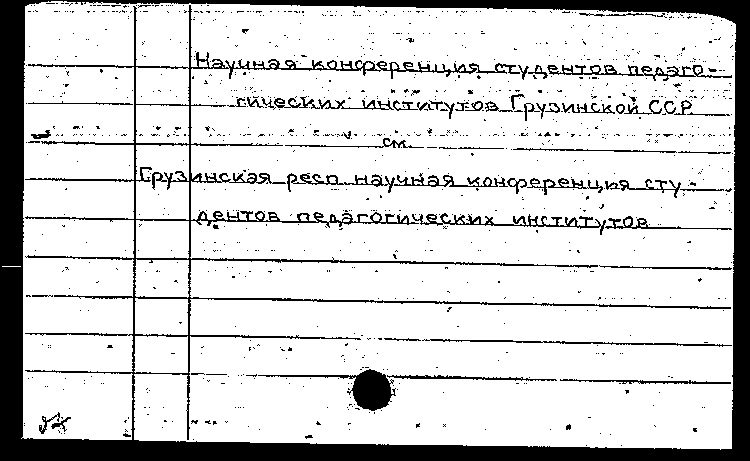 Научная конференция студентов педаго-
гических институтов Грузинской ССР
см.
Грузинская респ научная конференция сту-
дентов педагогических институтов